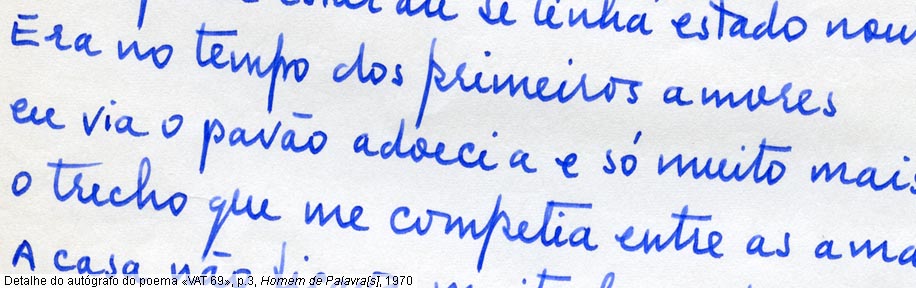 se tinha estado nou
Era no tempo dos primeiros amores
eu via o pavão adoecia e só muito mais
o trecho que me competia entre as ama
A casa não
Detalhe do autógrafo do poema «VAT 69», p.3, Homem de Palavra[s], 1970